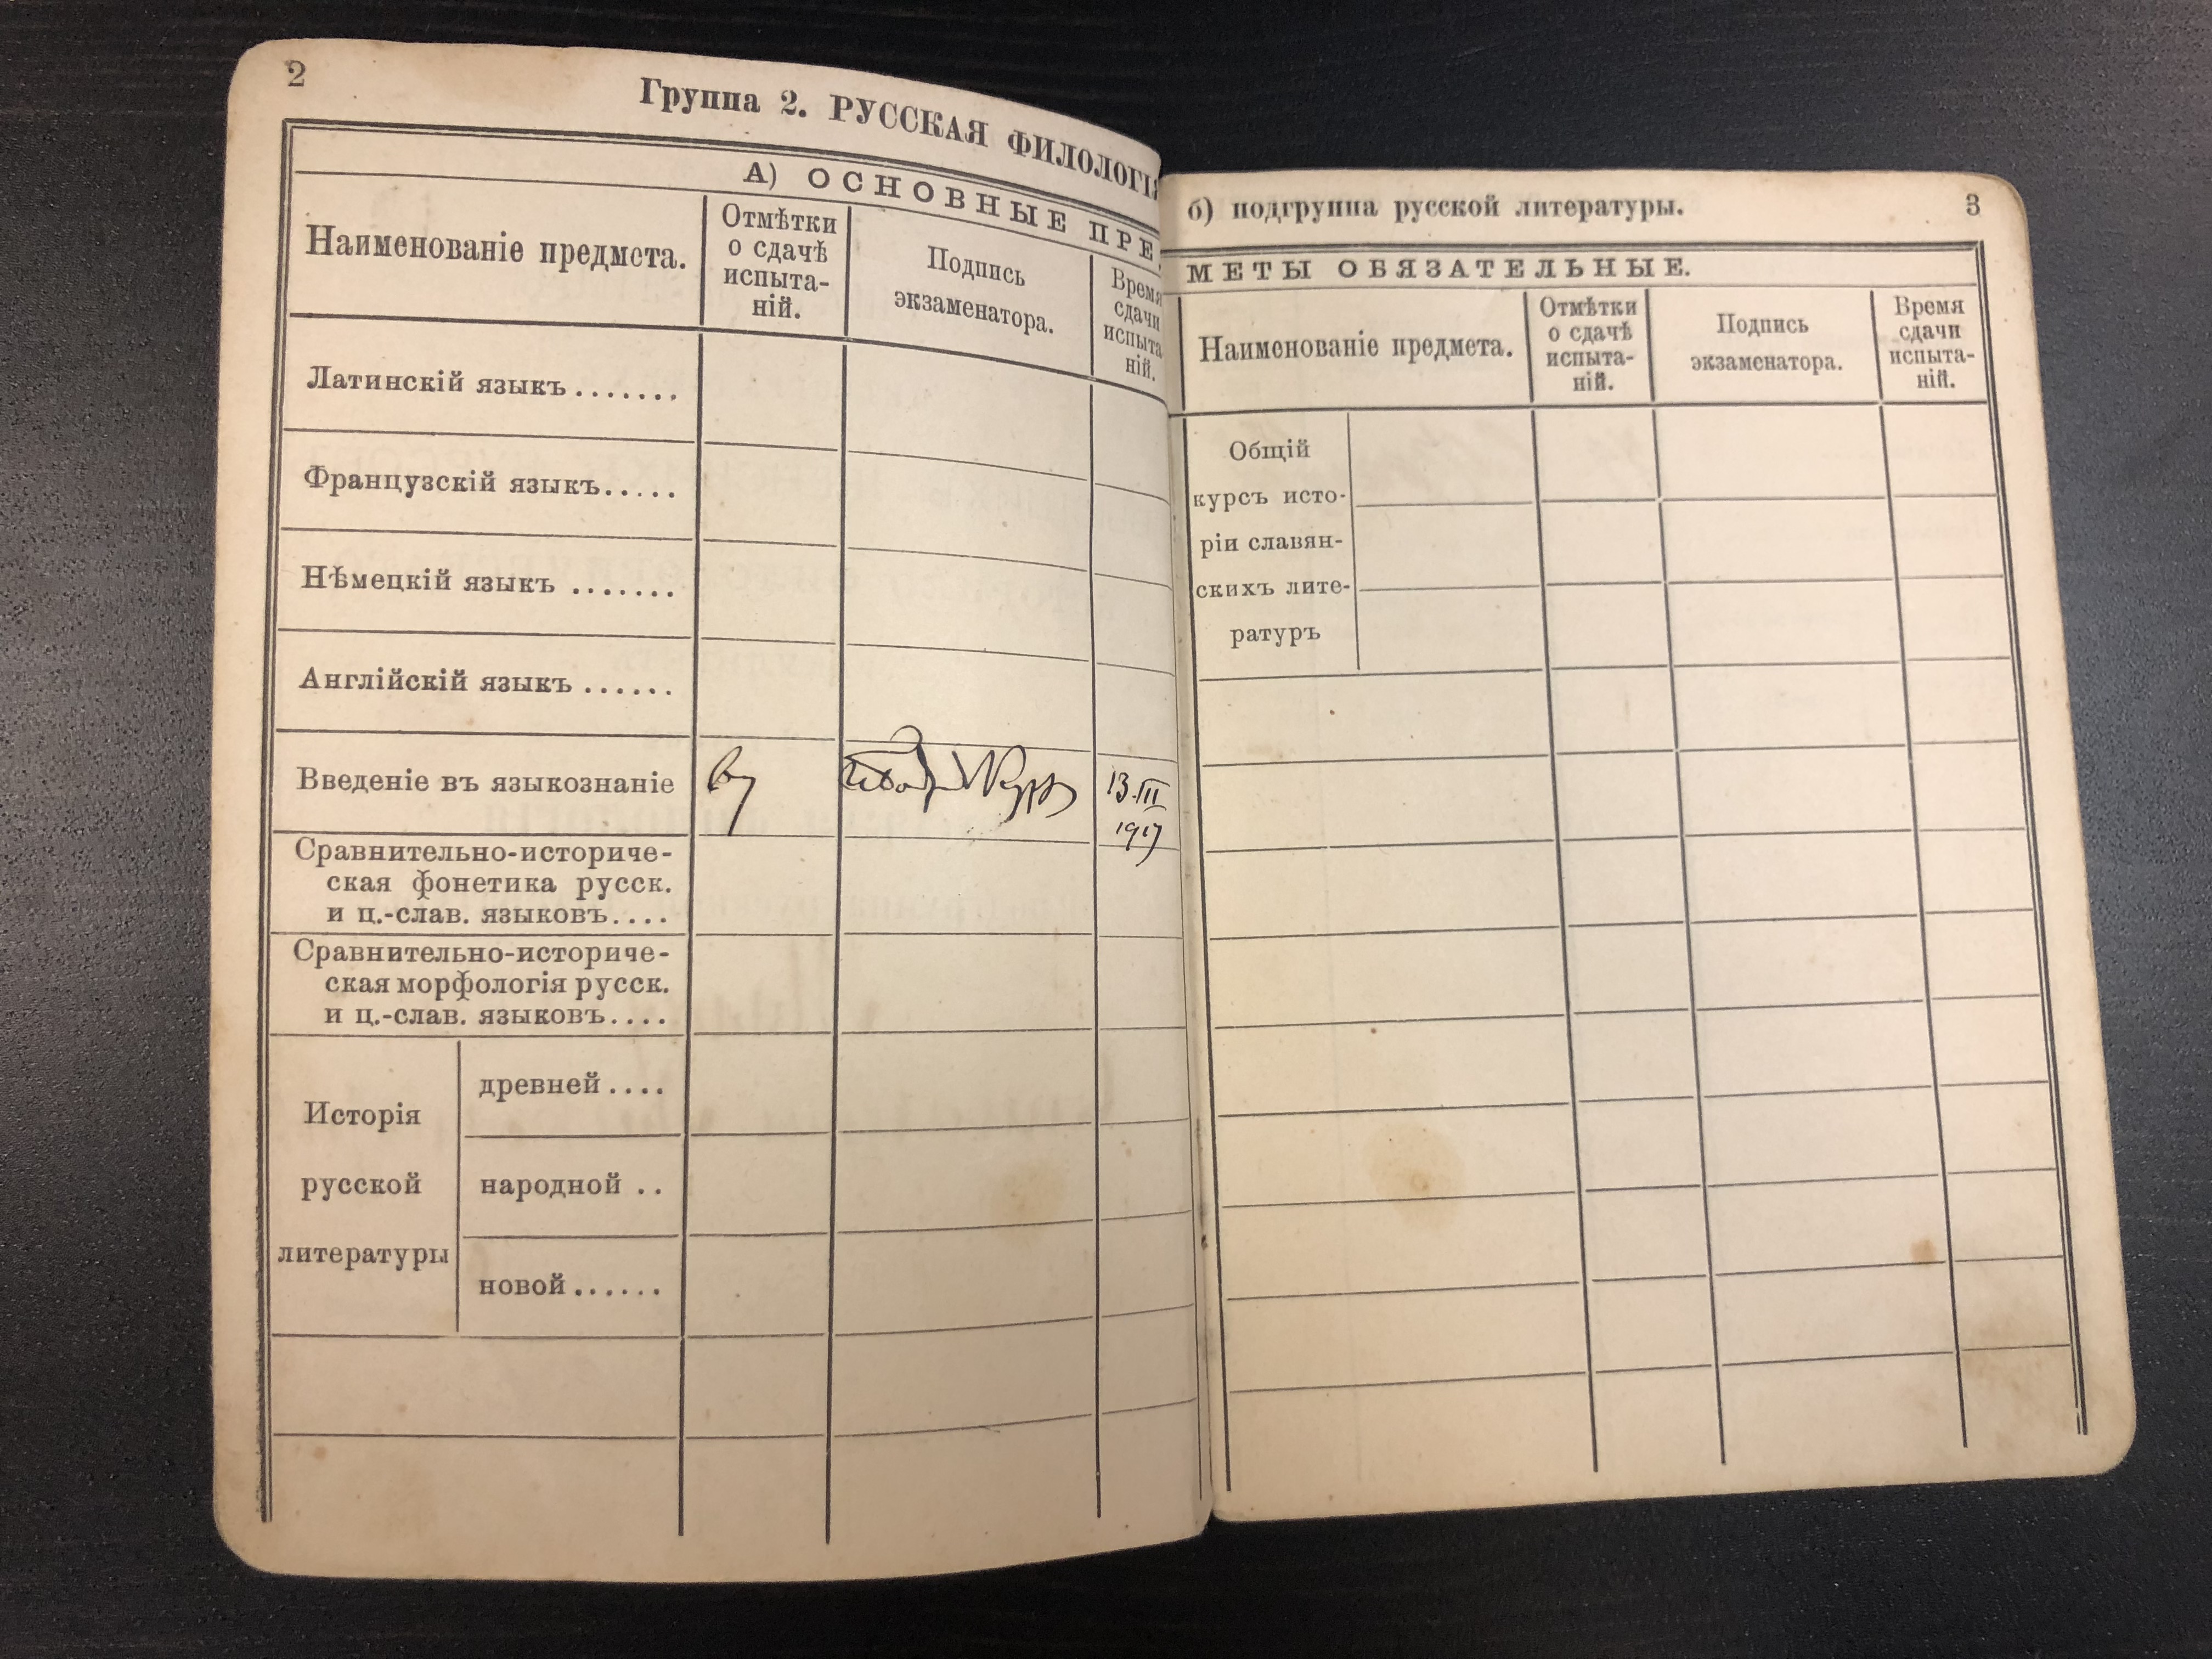 2
Группа 2. РУССКАЯ ФИЛОЛОГІЯ
А) ОСНОВНЫЕ ПРЕД
Наименованіе предмета.
Отмѣтки
о сдачѣ
испыта-
ній.
Подпись
экзаменатора.
Время
сдачи
испыта
ній.
Латинскій языкъ.......
Французскій языкъ.....
Нѣмецкій языкъ .......
Англійскій языкъ ......
Введеніе въ языкознаніе
ву
13.III
1917
Сравнительно-историче-
ская фонетика русск.
и ц.-слав. языковъ....
Сравнительно-историче-
ская морфологія русск.
и ц.-слав. языковъ....
Исторія
русской
литературы
древней....
народной ..
новой......
б) подгруппа русской литературы.
3
МЕТЫ ОБЯЗАТЕЛЬНЫЕ.
Наименованіе предмета.
Отмѣтки
о сдачѣ
испыта-
ній.
Подпись
экзаменатора.
Время
сдачи
испыта-
ній.
Общій
курсъ исто-
ріи славян-
скихъ лите-
ратуръ